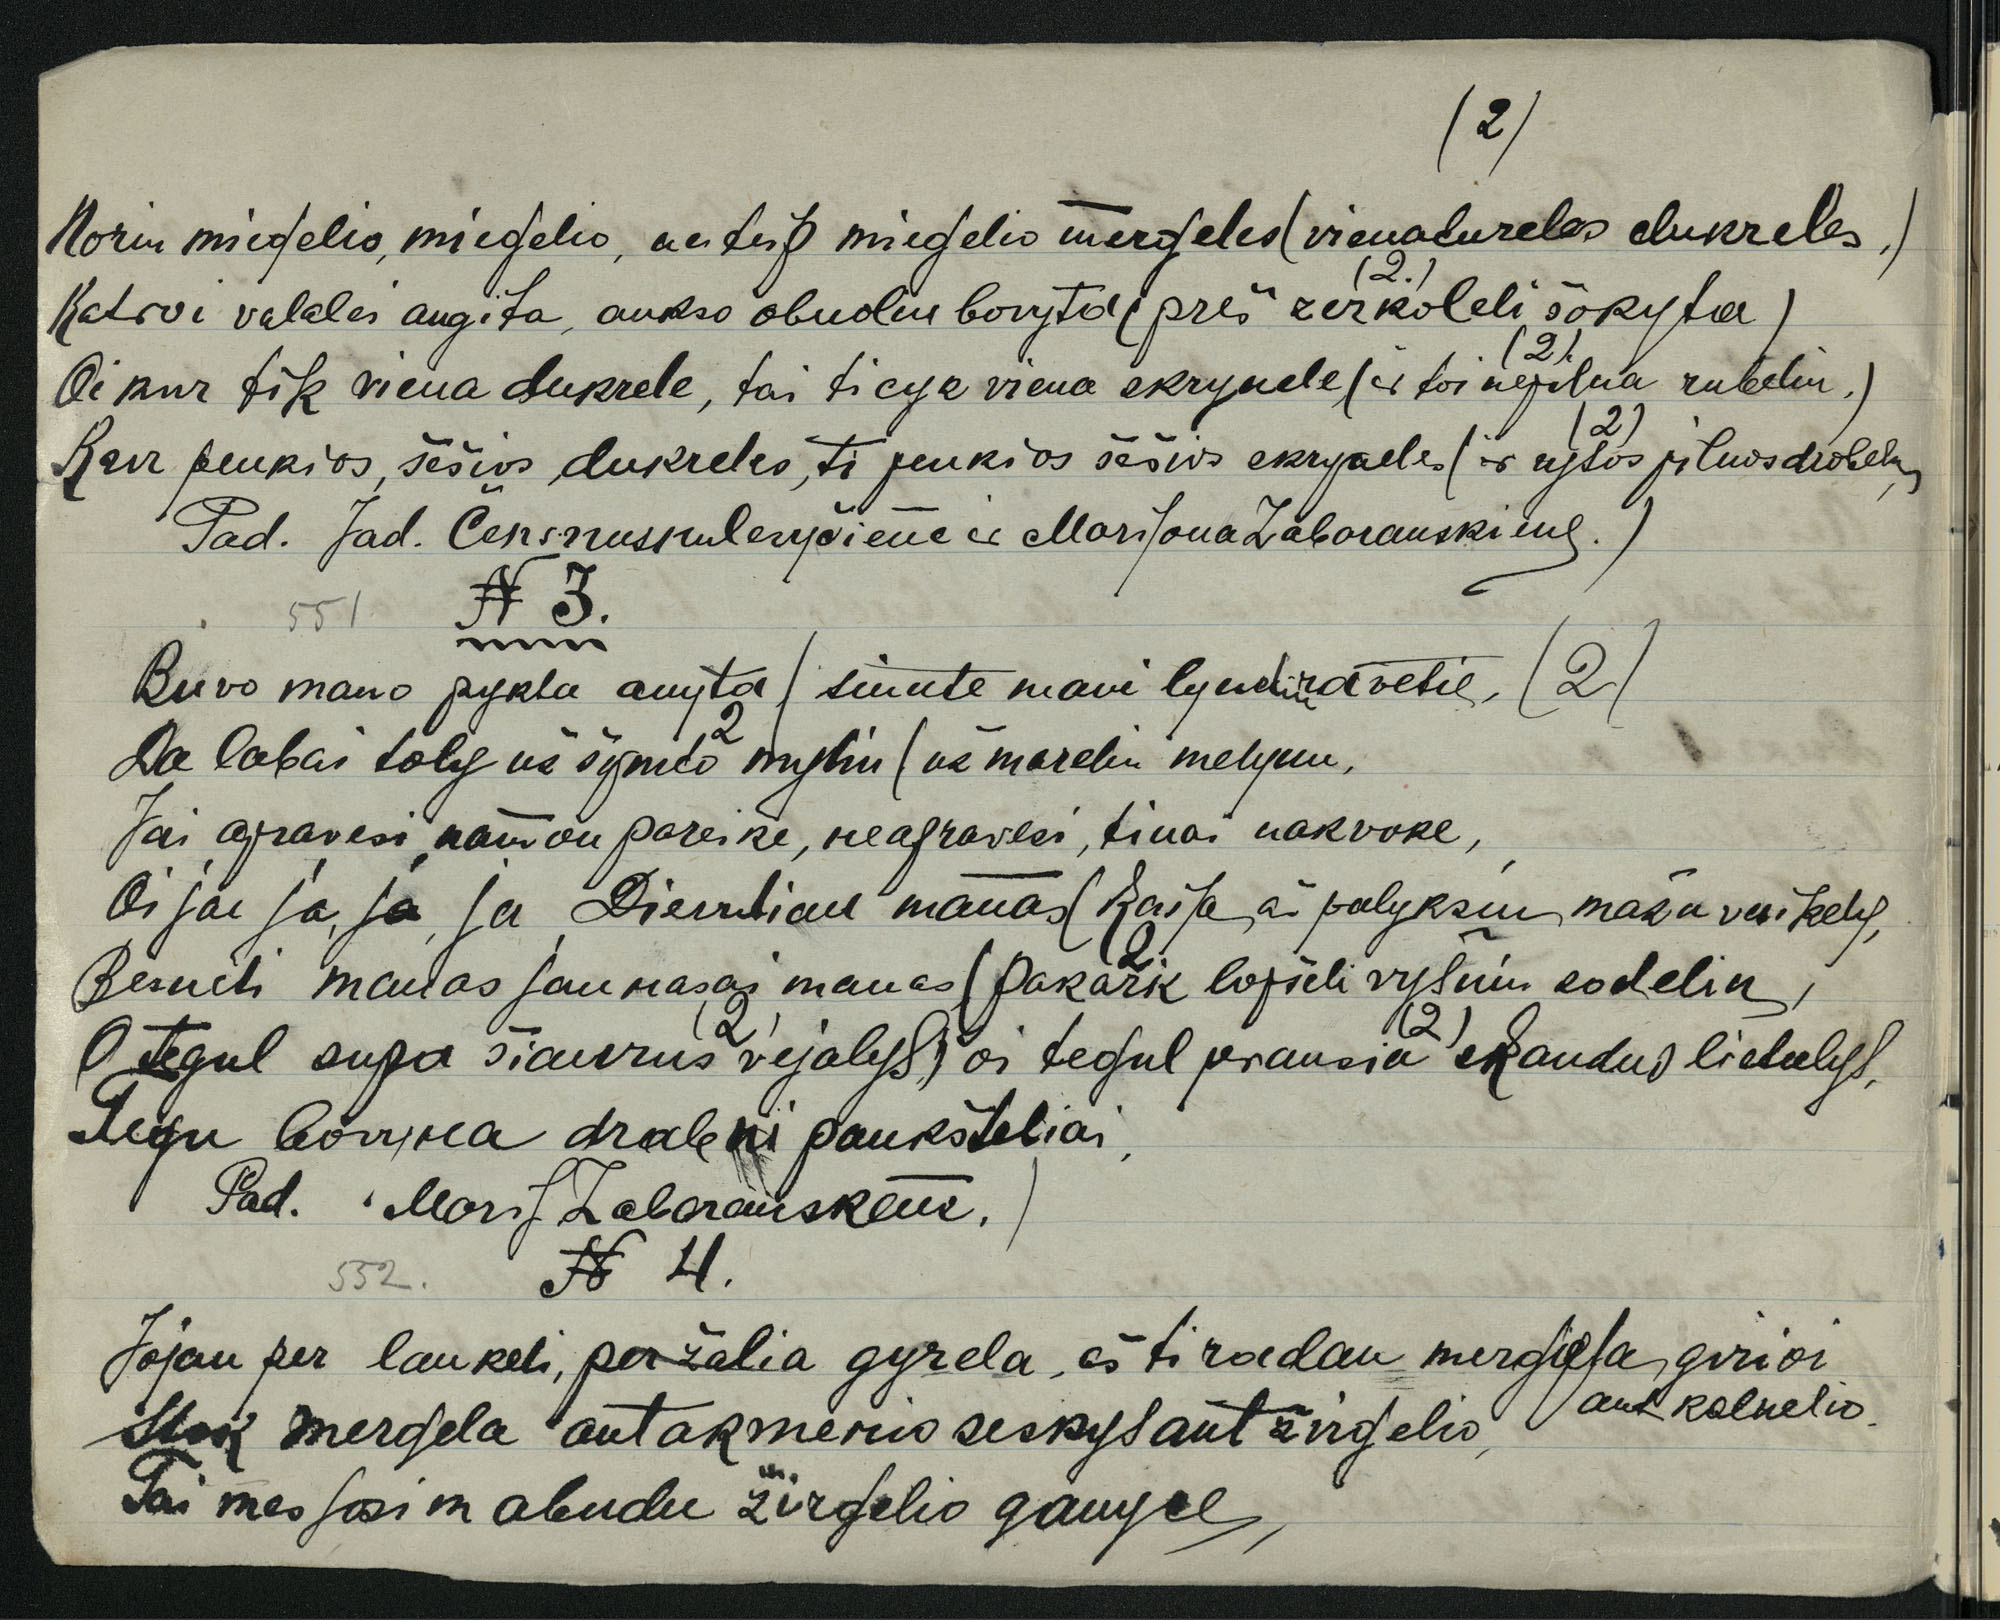 (2)
Noriu miegelio, miegelio, ne teip miegelio mergeles (vienatureles dukreles,)
Katroi valalei augita, aukso obuoliu bovyta (prĕs zerkoleli šokyta) (2.)
Oi kur tik viena dukrele, tai ti cyk viena skrynele, (ir toi nepilna rubeliu.) (2).
Kur penkios, šešios dukreles, ti penkios šešios skryneles (ir vysos pilnos drobeliu, (2)
Pad. Jad. ir Marijona Zaborauskiene.)
551. N 3.
Buvo mano pykta anyta (siunte mani lyneliu ravetie, (2)
Da labai toly už šymto myliu (už mareliu melynu, 2
Jai apravesi namon pareike, neapravesi, tinai nakvoke,
Oi ja ja, ja, ja Dievuliau manas (Kaip aš palyksiu maža vaikely,
Berneli manas jaunasai manas (pakařk lopšeli vyšniu sodeliu, 2
O tegul supa šiaurus vejalys, (2) oi tegul prausia (2) skaudus lietulys,
Tegu bovyna drabni paukšteliai,
Pad. Marij Zaborauskene.)
552. N 4.
Jojau per laukeli, per žalia gyrela, aš ti radau mergela, girioi
ant kalnelio.
Stok mergela ant akmenio seskys ant žirgelio,
Tai mes josim abudu žirgelio ganyce,